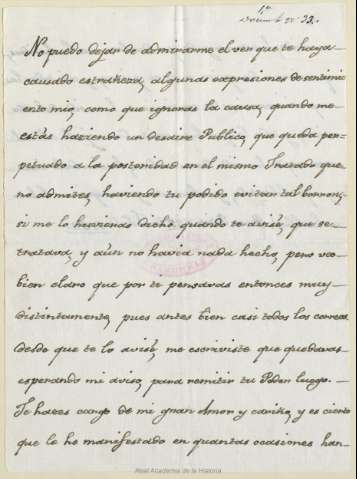 1.a
Docum.to n.o 22.
No puedo dejar de admirarme el ver que te haya
causado estrañeza, algunas expresiones de sentimi
ento mio, como que ignoras la causa, quando me
estás haciendo un desaire Publico, que queda per-
petuado a la posteridad en el mismo Tratado que
no admites, haviendo tu podido evitar tal borron,
si me lo huvieras dicho quando te avisé, que se
tratava, y aún no havia nada hecho, pero veo
bien claro que por ti pensavas entonces muy
distintamente, pues antes bien casi todos los correos
desde que te lo avisé, me escriviste que quedavas
esperando mi aviso, para remitir tu Poder luego. —
Te haces cargo de mi gran Amor y cariño, y es cierto
que te lo he manifestado en quantas ocasiones han
Real Academia de la Historia